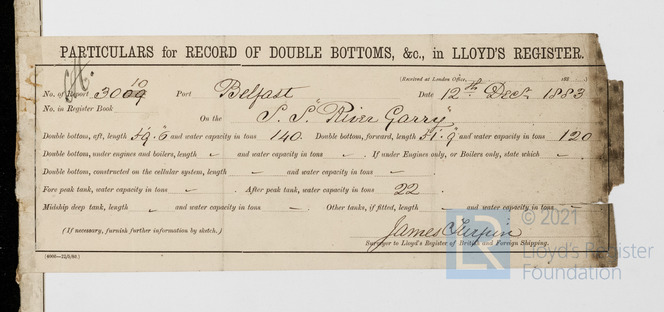 PARTICULARS for RECORD OF DOUBLE BOTTOMS, &c., in LLOYD'S REGISTER.
(Received at London Office, 188 )
No. of Report 3009 10 Port Belfast Date 12th Decr 1883
No. in Register Book
On the S.S. "River Garry"
Double bottom, aft, length 59.6 and water capacity in tons 140. Double bottom, forward, length 51.9" and water capacity in tons 120
Double bottom, under engines and boilers, length – and water capacity in tons – . If under Engines only, or Boilers only, state which – .
Double bottom, constructed on the cellular system, length – and water capacity in tons –
Fore peak tank, water capacity in tons – . After peak tank, water capacity in tons 22 .
Midship deep tank, length – and water capacity in tons – Other tanks, if fitted, length – and water capacity in tons –
(If necessary, furnish further information by sketch.)
James Turpin
Surveyor to Lloyd's Register of British and Foreign Shipping.
LR
© 2021
Lloyd's Register
Foundation